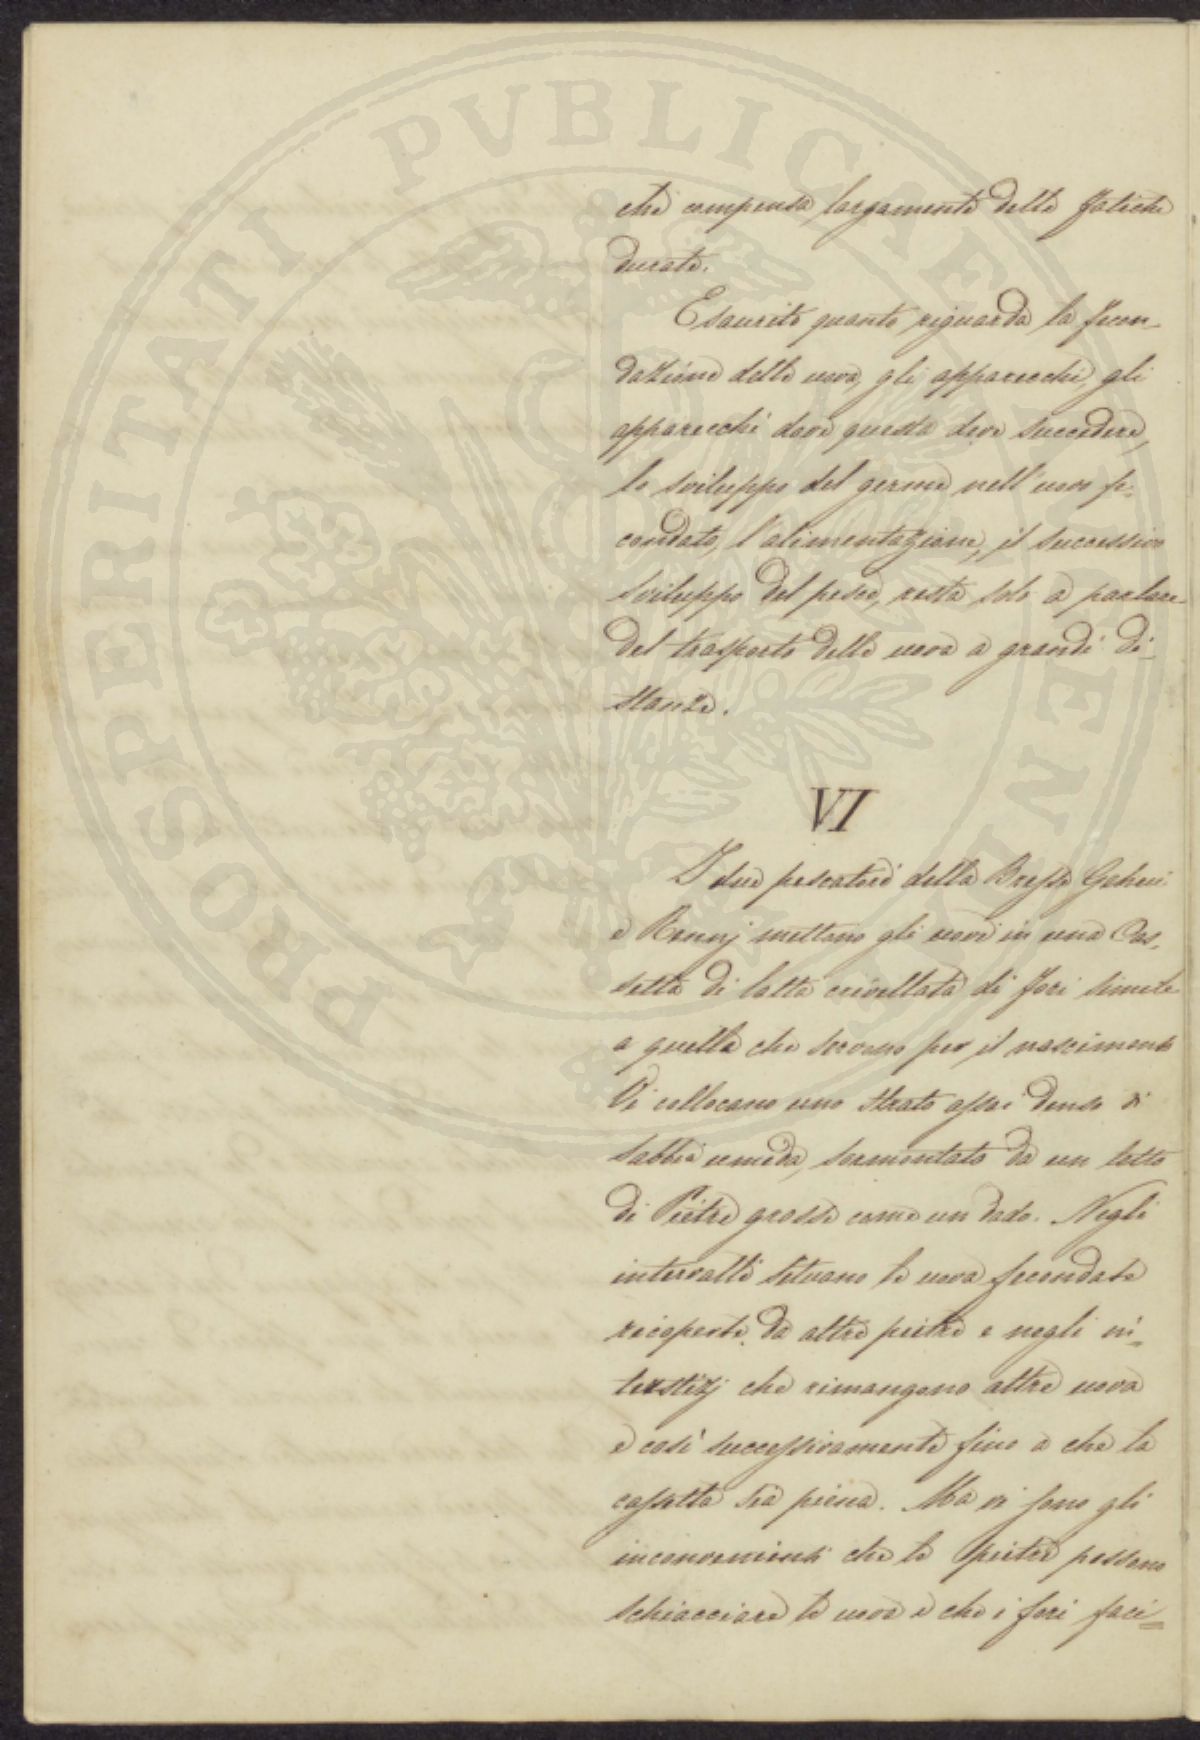 PROSPERITATI PVBLICAE AVGENDAE
che compensa largamente delle fatiche
durate.
Esaurito quanto riguarda la fecon-
dazione delle uova, gli apparecchi, gli
apparecchi dove questa deve succedere,
lo sviluppo del germe nell'uovo fe-
condato, l'alimentazione, il successivo
sviluppo del pesce, resta solo a parlare
del trasporto delle uova a grandi di-
stanze.
VI
I due pescatori della Bresse
e mettono gli uovi in una Cas-
setta di latta crivellata di fori simile
a quelle che servono per il nascimento
Vi collocano uno strato assai denso di
sabbia umida, sormontato da un letto
di Pietre grosse come un dado. Negli
intervalli situano le uova fecondate
ricoperte da altre pietre e negli in-
terstizj che rimangono altre uova
e così successivamente fino a che la
cassetta sia piena. Ma vi sono gli
inconvenienti che le pietre possono
schiacciare le uova e che i fori faci=